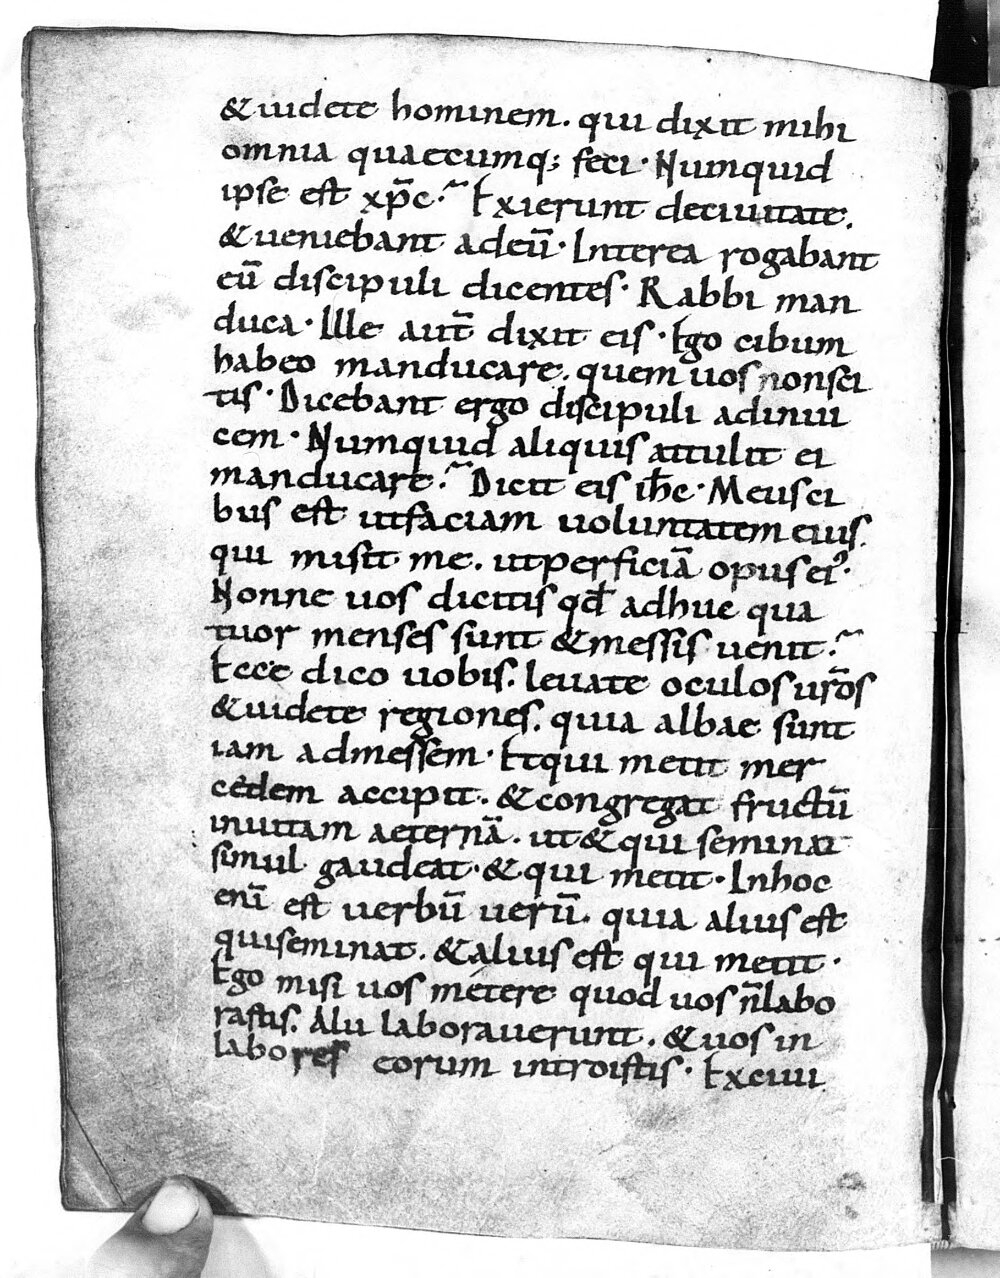 &uidete hominem. qui dixit mihi
omnia quaecumq; feci· Numquid
ipse est xp̄c·~ Exierunt deciuitate.
&ueniebant adeū· Interea rogabant
eū discipuli dicentes· Rabbi man
duca· Ille aut̄ dixit eis· Ego cibum
habeo manducare. quem uos nonsci
tis· Dicebant ergo discipuli adinui
cem· Numquid aliquis attulit ei
manducare·~ Dicit eis ih̄c· Meusci
bus est utfaciam uoluntatem eius.
qui misit me. utperficiā opus ei᾽·
Nonne uos dicitis qd̄ adhuc qua
tuor menses sunt &messis uenit·~
Ecce dico uobis. leuate oculosur̄os
&uidete regiones. quia albae sunt
iam admessem· Etqui metit mer
cedem accipit. &congregat fructū
inuitam aeternā. ut&qui seminat
simul gaudeat·&qui metit· Inhoc
enī est uerbū uerū. quia aliusest
quiseminat. &aliusest qui metit·
Ego misi uos metere quod uos n̄labo
rastis. Alii laborauerunt. &uos in
labores eorum introistis· Exciui